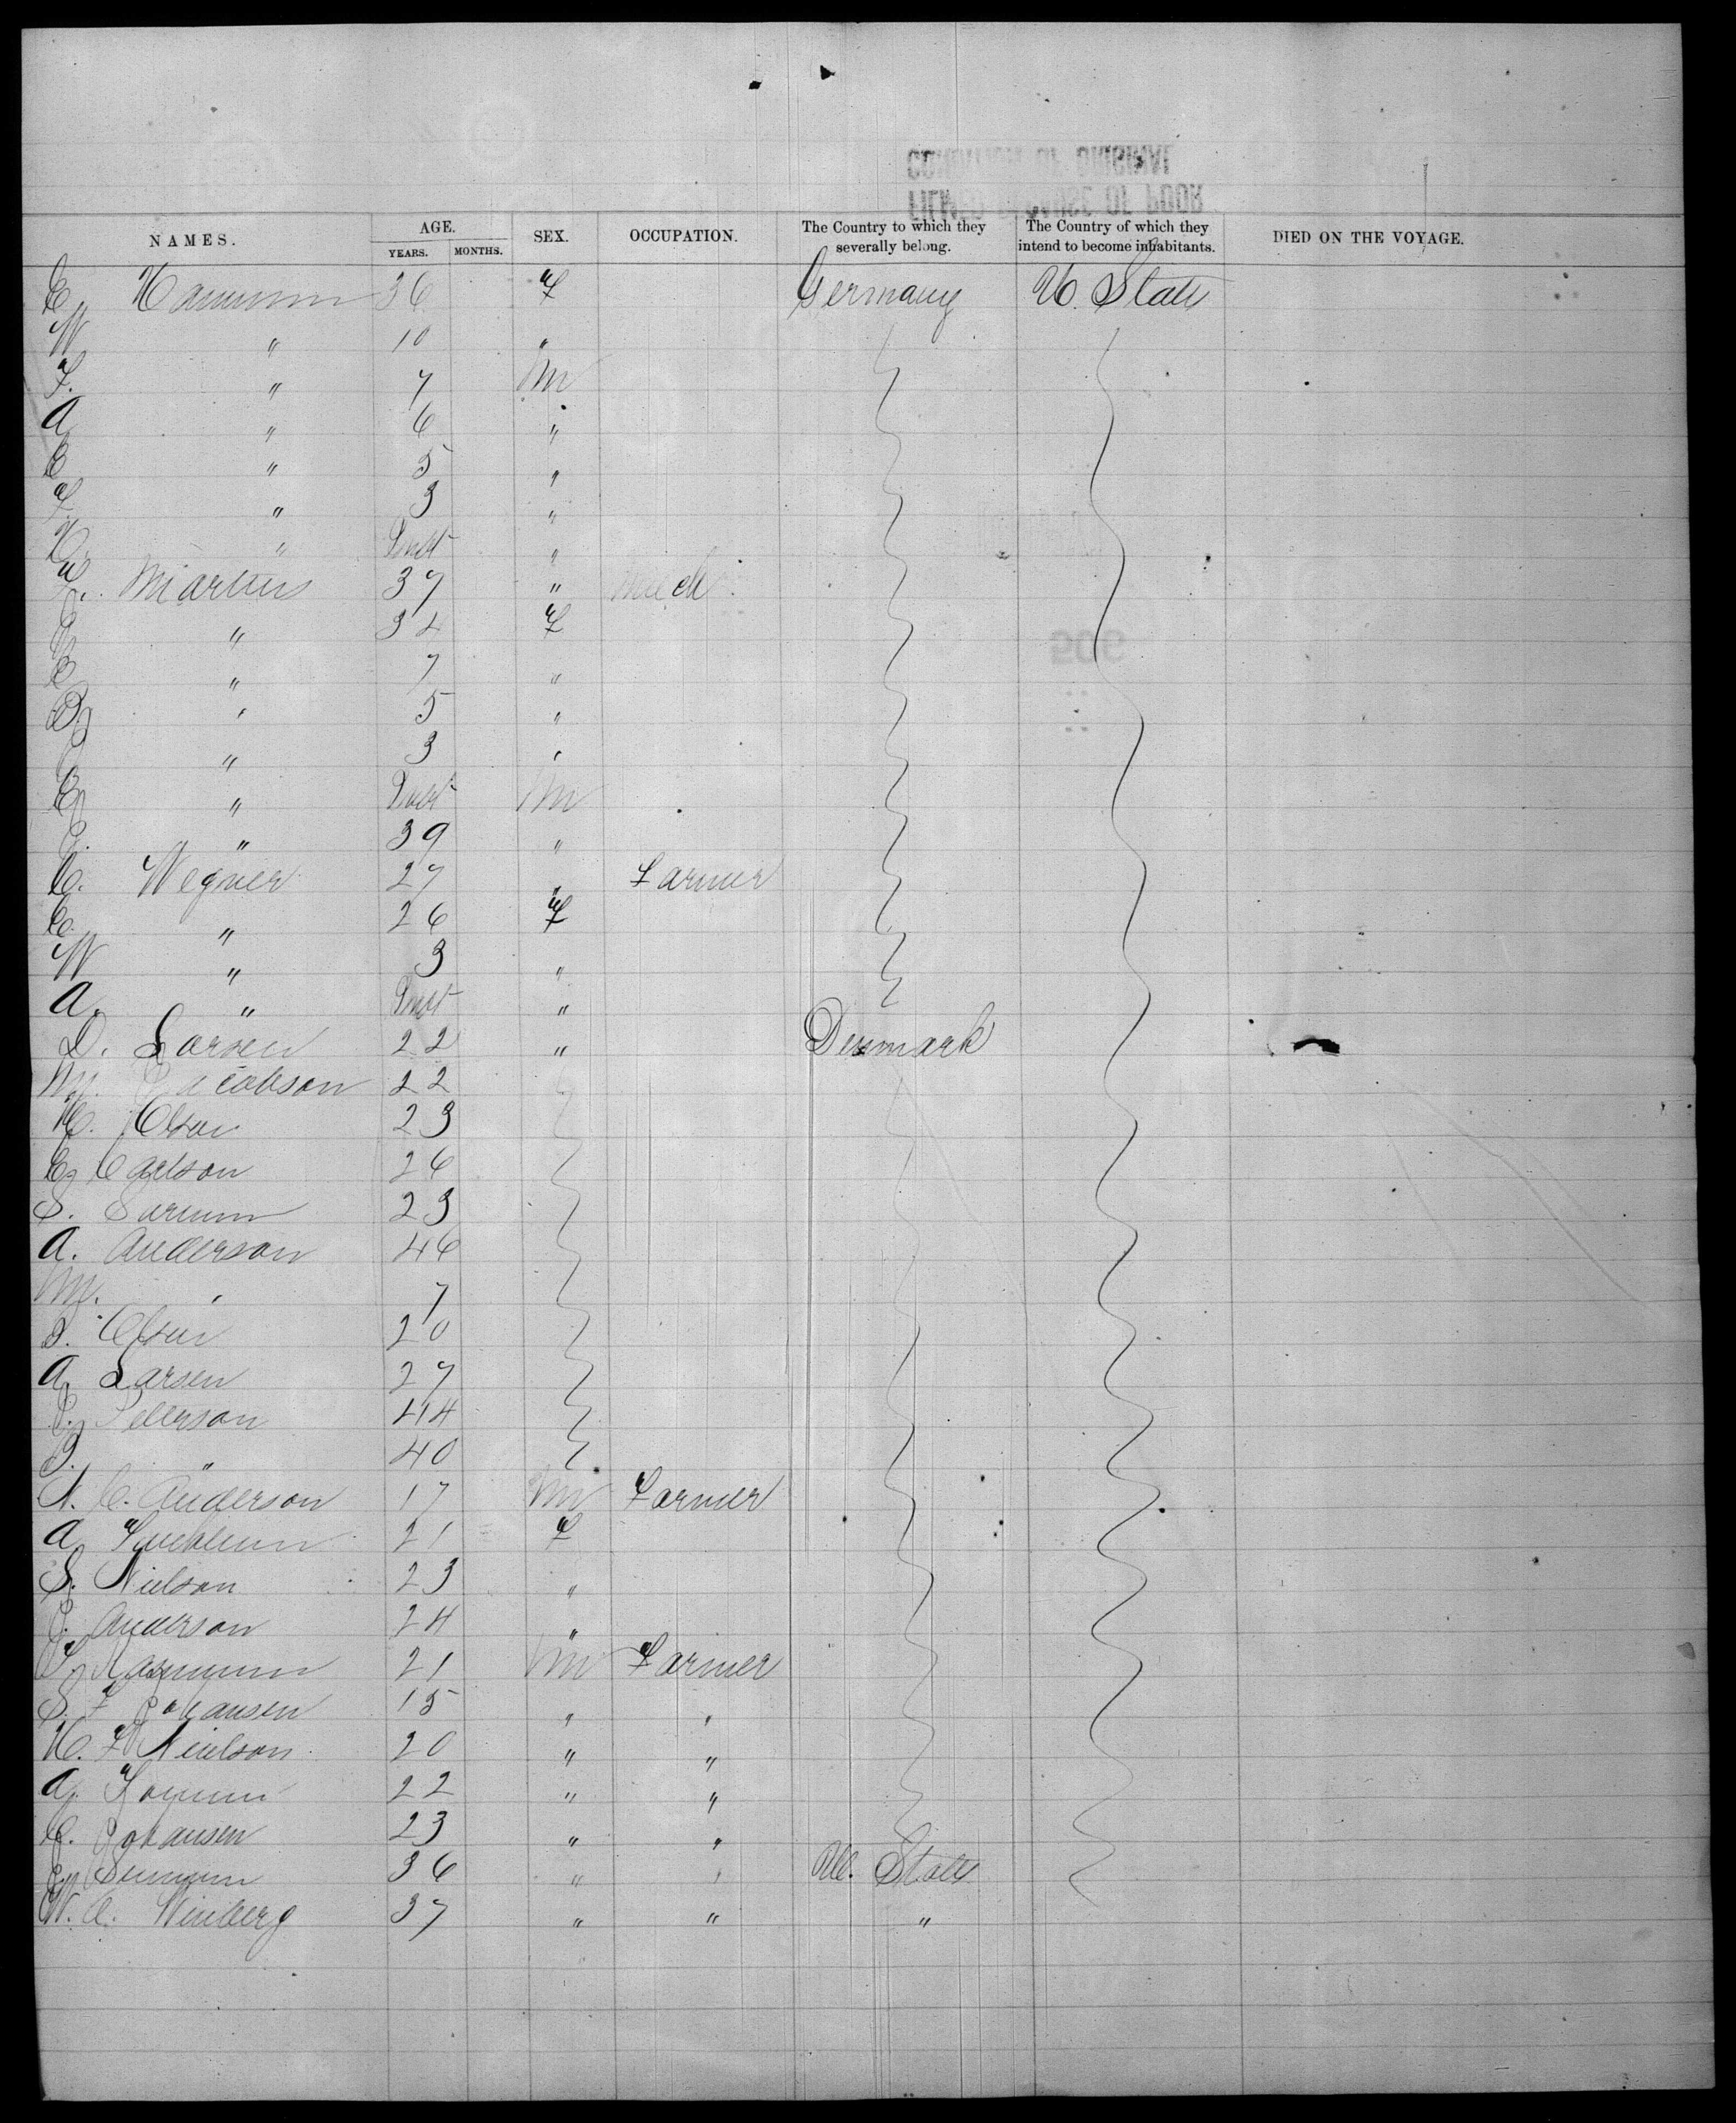 NAMES. AGE. YEARS. MONTHS. SEX. OCCUPATION. The Country to which they severally belong. The Country of which they intend to become inhabitants. DIED ON THE VOYAGE.
E. 36 F Germany U. States
W " 10 "
F. " 7 M
A " 6 "
E " 5 "
F. " 3 "
H. " Inft "
F. Martins 37 "
" 32 F
E " 7 "
B " 5 "
" 3 "
E " Inft M
" 39 "
C. Wegner 27 " Farmer
C. " 26 F
W " 3 "
A. " Inft "
D. Larsen 22 " Denmark
M. Jacobson 22
H. Olson 23
E. Carlson 26
S. 23
A. Anderson 46
M. " 7
Olsen 20
A. Larsen 27
Peterson 44
" 40
N. C. Anderson 17 M Farmer
A. 21 F
S. Nielson 23 "
Anderson 24 "
21 M Farmer
S. F Johansen 15 " "
H. F Nielson 20 " "
A. 22 " "
C. Johansen 23 " "
36 " " U. States
W. A. Winberg 37 " " "